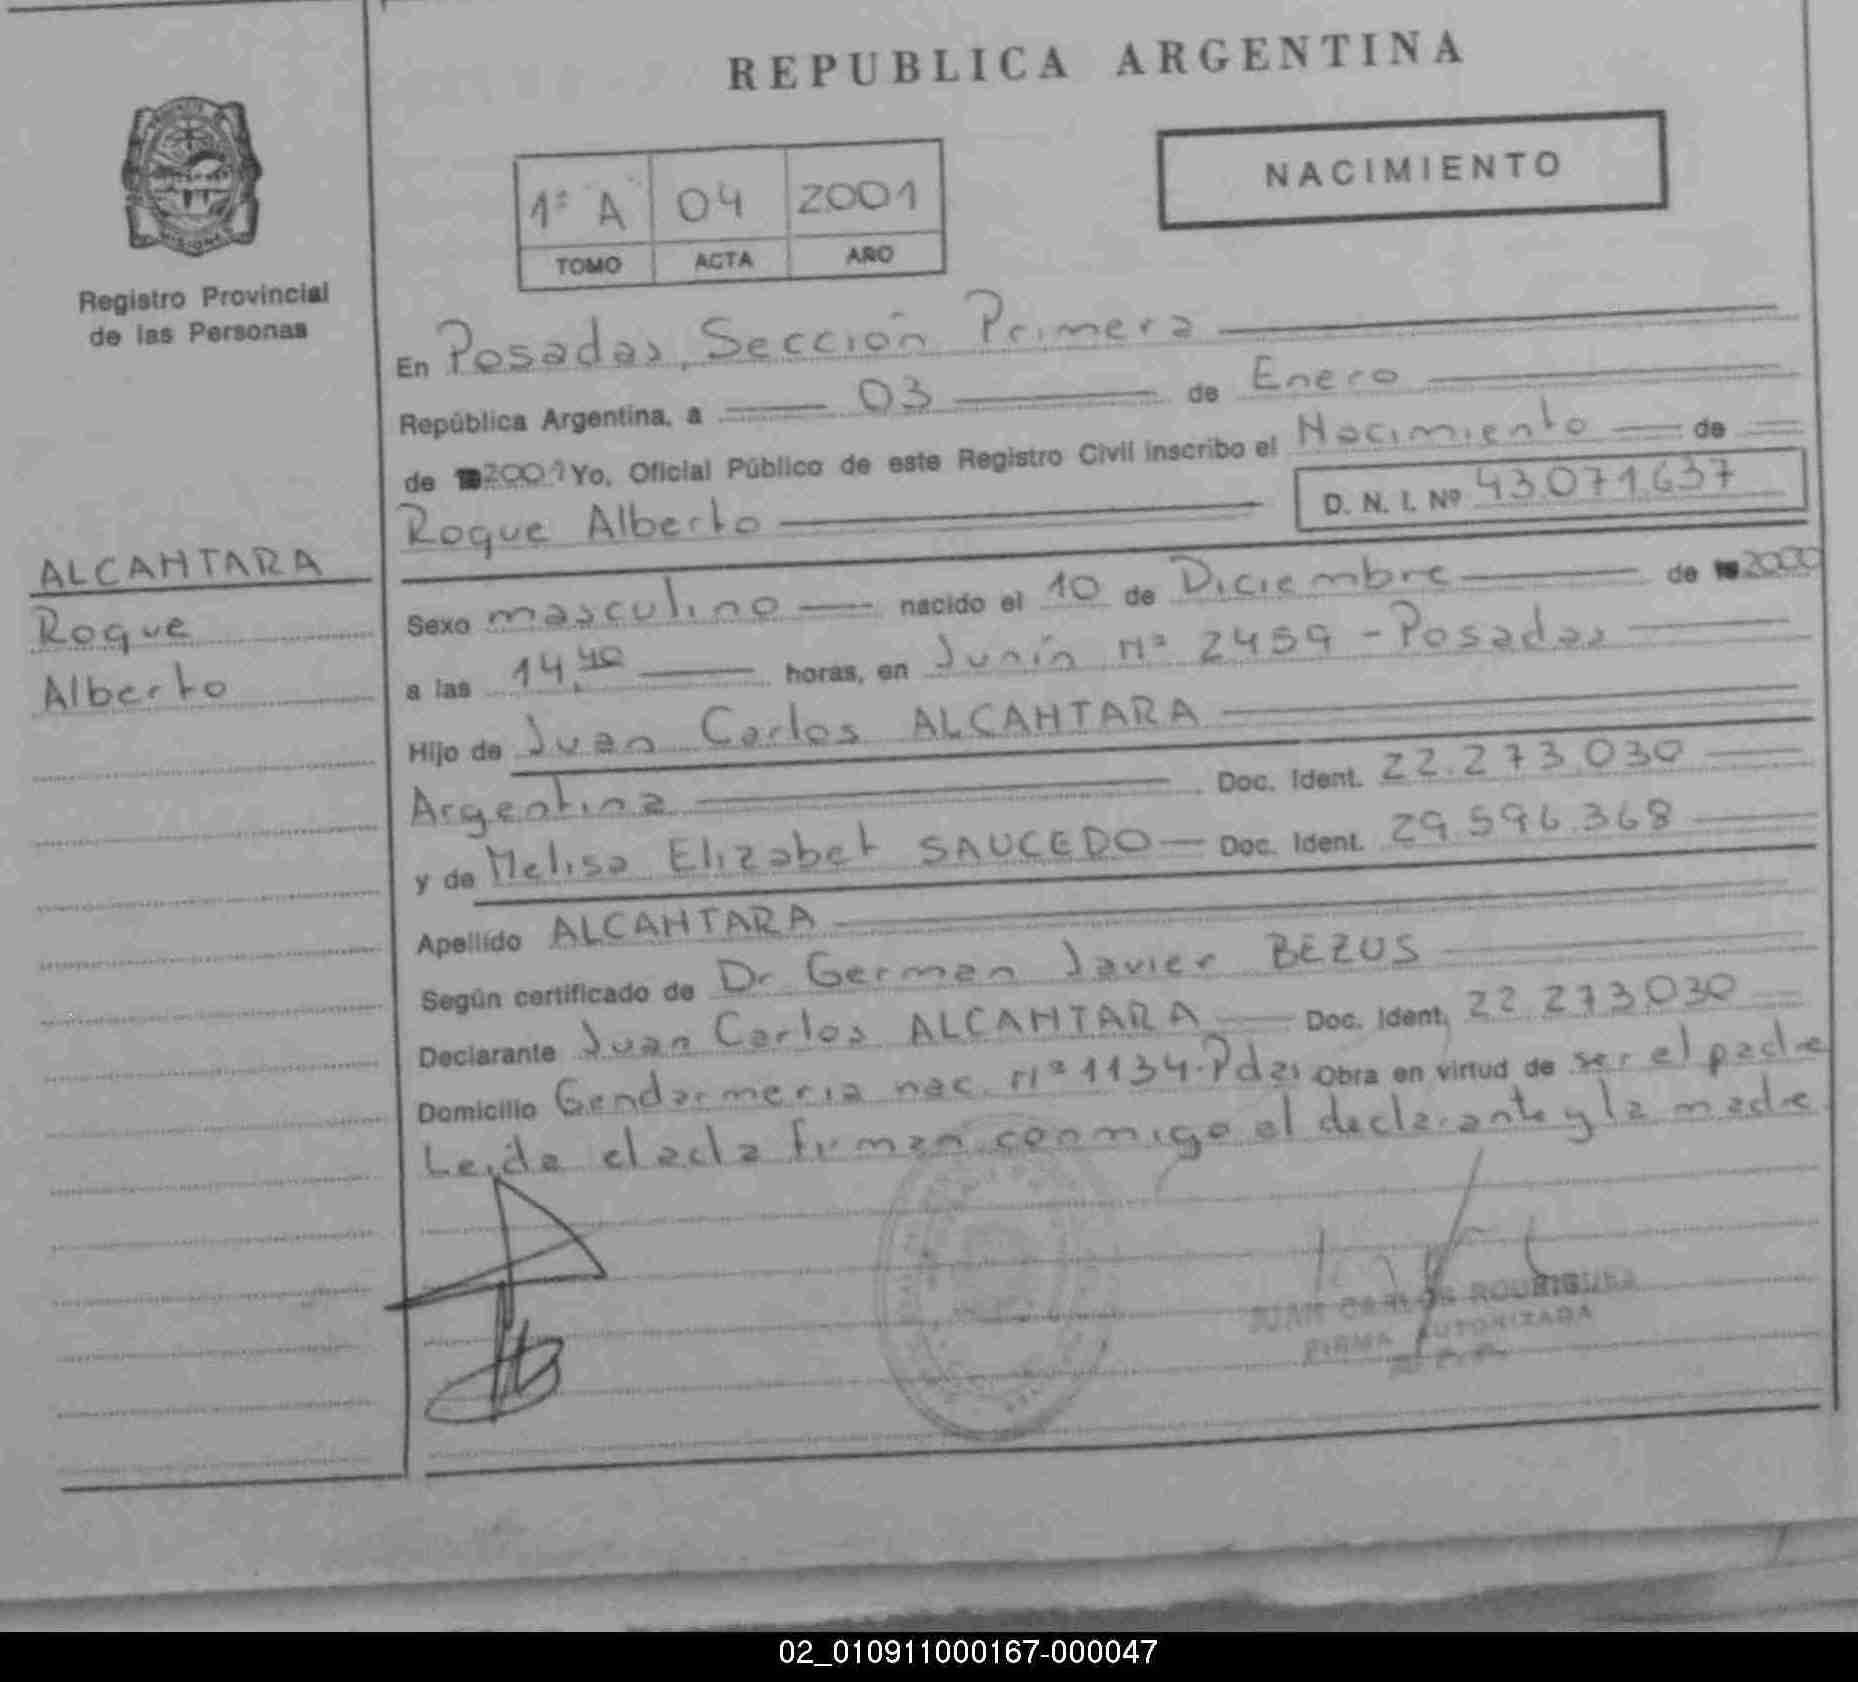 REPUBLICA ARGENTINA
NACIMIENTO
1º A 04 2001
TOMO ACTA AÑO
Registro Provincial
de las Personas
ALCANTARA
Roque
Alberto
En Posadas, Sección Primera
República Argentina, a 03 de Enero
de 2001 Yo, Oficial Público de este Registro Civil inscribo el Nacimiento de
Roque Alberto D. N. I. Nº 43.071.637
Sexo masculino nacido el 10 de Diciembre de 2000
a las 14,40 horas, en Junín Nº 2459 - Posadas
Hijo de Juan Carlos ALCANTARA
Argentina Doc. Ident. 22.273.030
y de Melisa Elizabet SAUCEDO Doc. Ident. 29.596.368
Apellido ALCANTARA
Según certificado de Dr German Javier BEZUS
Declarante Juan Carlos ALCANTARA Doc. Ident. 22.273.030
Domicilio Gendarmeria nac. Nº 1134-Pdas Obra en virtud de ser el padre
Leida el acta firman conmigo el declarante y la madre
JUAN CARLOS RODRIGUEZ
FIRMA AUTORIZADA
02_010911000167-000047